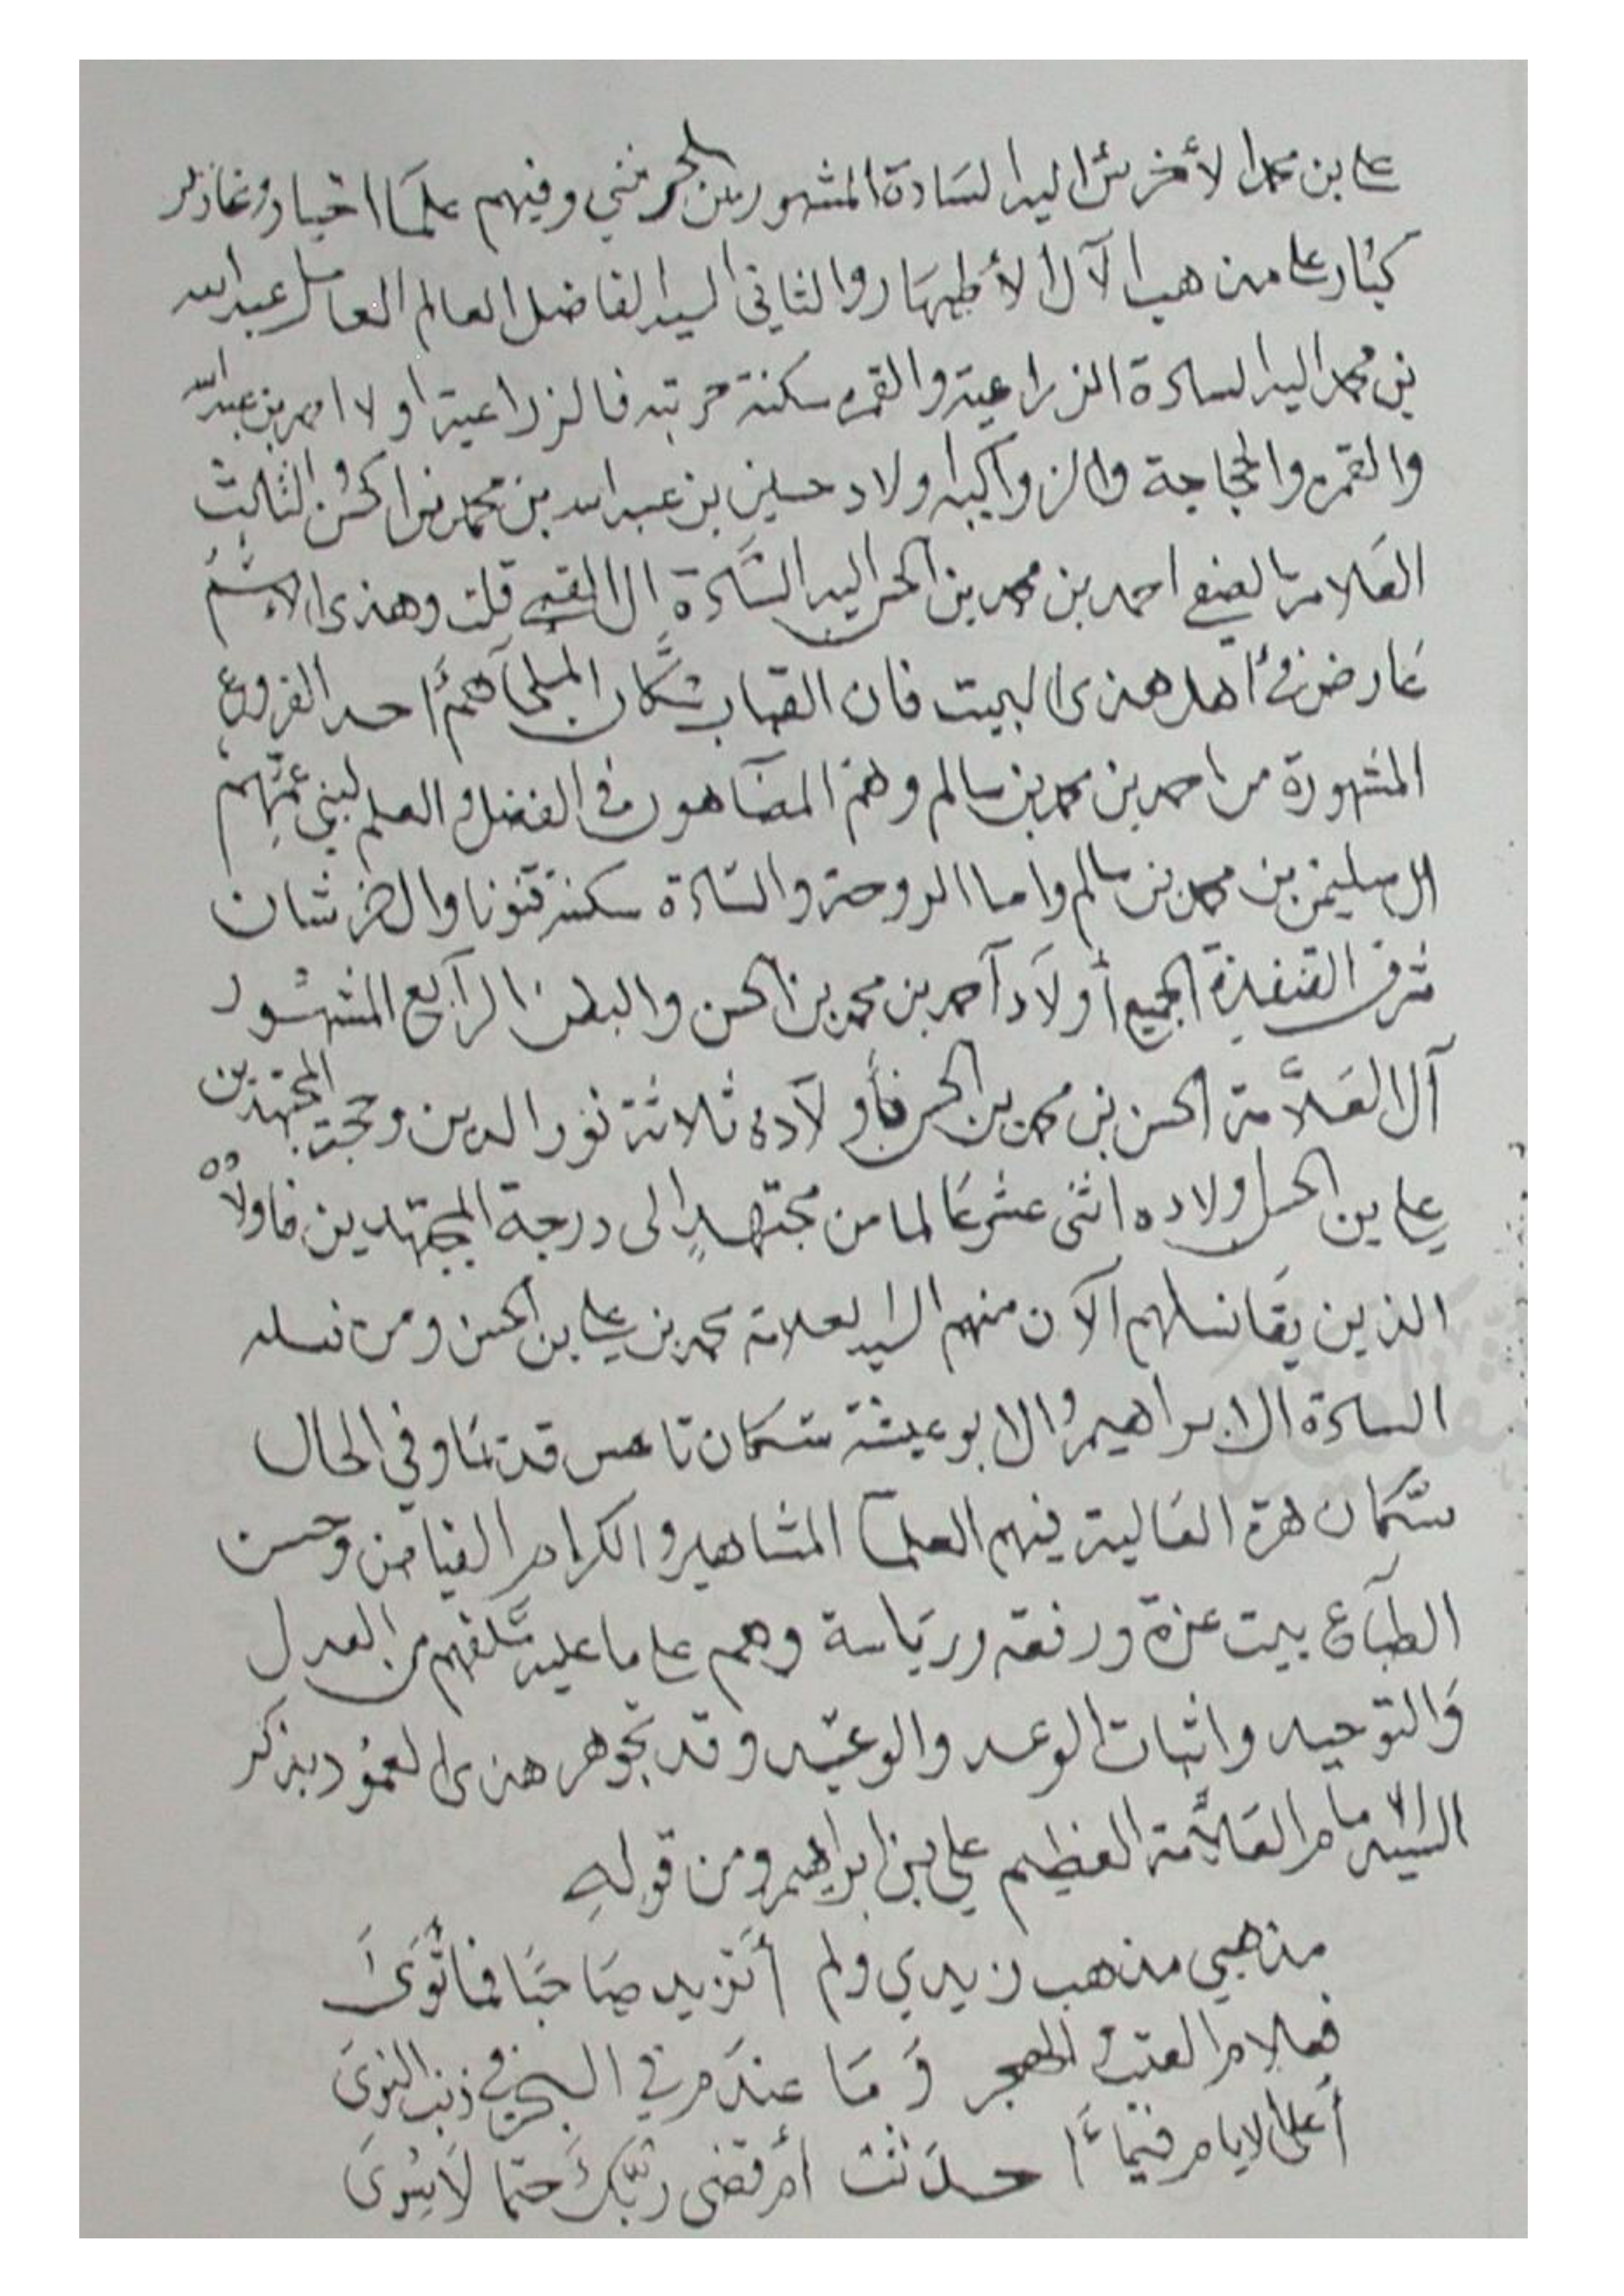 علي بن محمد الأخرش اليه السادة المشهورين الجر مثني وفيهم علما اخيار
كبار على مذهب الآل الأطهار والثاني السيد الفاضل العالم العامل عبدالله
بن محمد اليه السادة الزراعية والقمره سكنة حرثبه فالزراعية اولاد احمد بن عبدالله
والقمره والحجاجة والزواكيه اولاد حسين بن عبدالله بن محمد بن الحسن والثالث
العلامة الصفي احمد بن محمد بن الحسن اليه السادة ال القصبي قلت وهذى الاسم
عارض في أهل هذى البيت فان القصاب سكان الملحا هم أحد الفروع
المشهورة من احمد بن محمد بن سالم وهم المضاهون في الفضل والعلم لبني عمهم
ال سليمن بن محمد بن سالم واما الدوحة والسادة سكنة قنونا والخرشان
شرق القنفذة الجميع أولاد آحمد بن محمد بن الحسن والبطن الرابع المشهور
آل العلاّمة الحسن بن محمد بن الحسن فأولآده ثلاثة نور الدين وحجة المجتهدين
علي بن الحسن اولاده اثنى عشر عالما من مجتهدٍ الى درجة المجتهدين فاولاده
الذين بقا نسلهم الآن منهم السيد العلامة محمد بن علي بن الحسن ومن نسله
السادة الابراهيم والابوعيشة سكان تاهس قدتما وفي الحال
سكان هرة العالية فيهم العلمآ المشاهير والكرام الفيامن وحسن
الطبآع بيت عزة ورفعة ورياسة وهم على ما عليه سلفهم من العدل
والتوحيد واثبات الوعد والوعيد وقد تجوهر هذى العمود بذكر
السيد الامام العلاّمة العظيم علي بن ابراهيم ومن قولهِ
مذهبي مذهب زيدي ولم أتزيد صاحبا فأتوى
فعلام العتب والهجر وما عندهم في البحر في ذنب النوى
أعلى الايام فيما أحدثت أم قضى ربك حتما لا يسوى